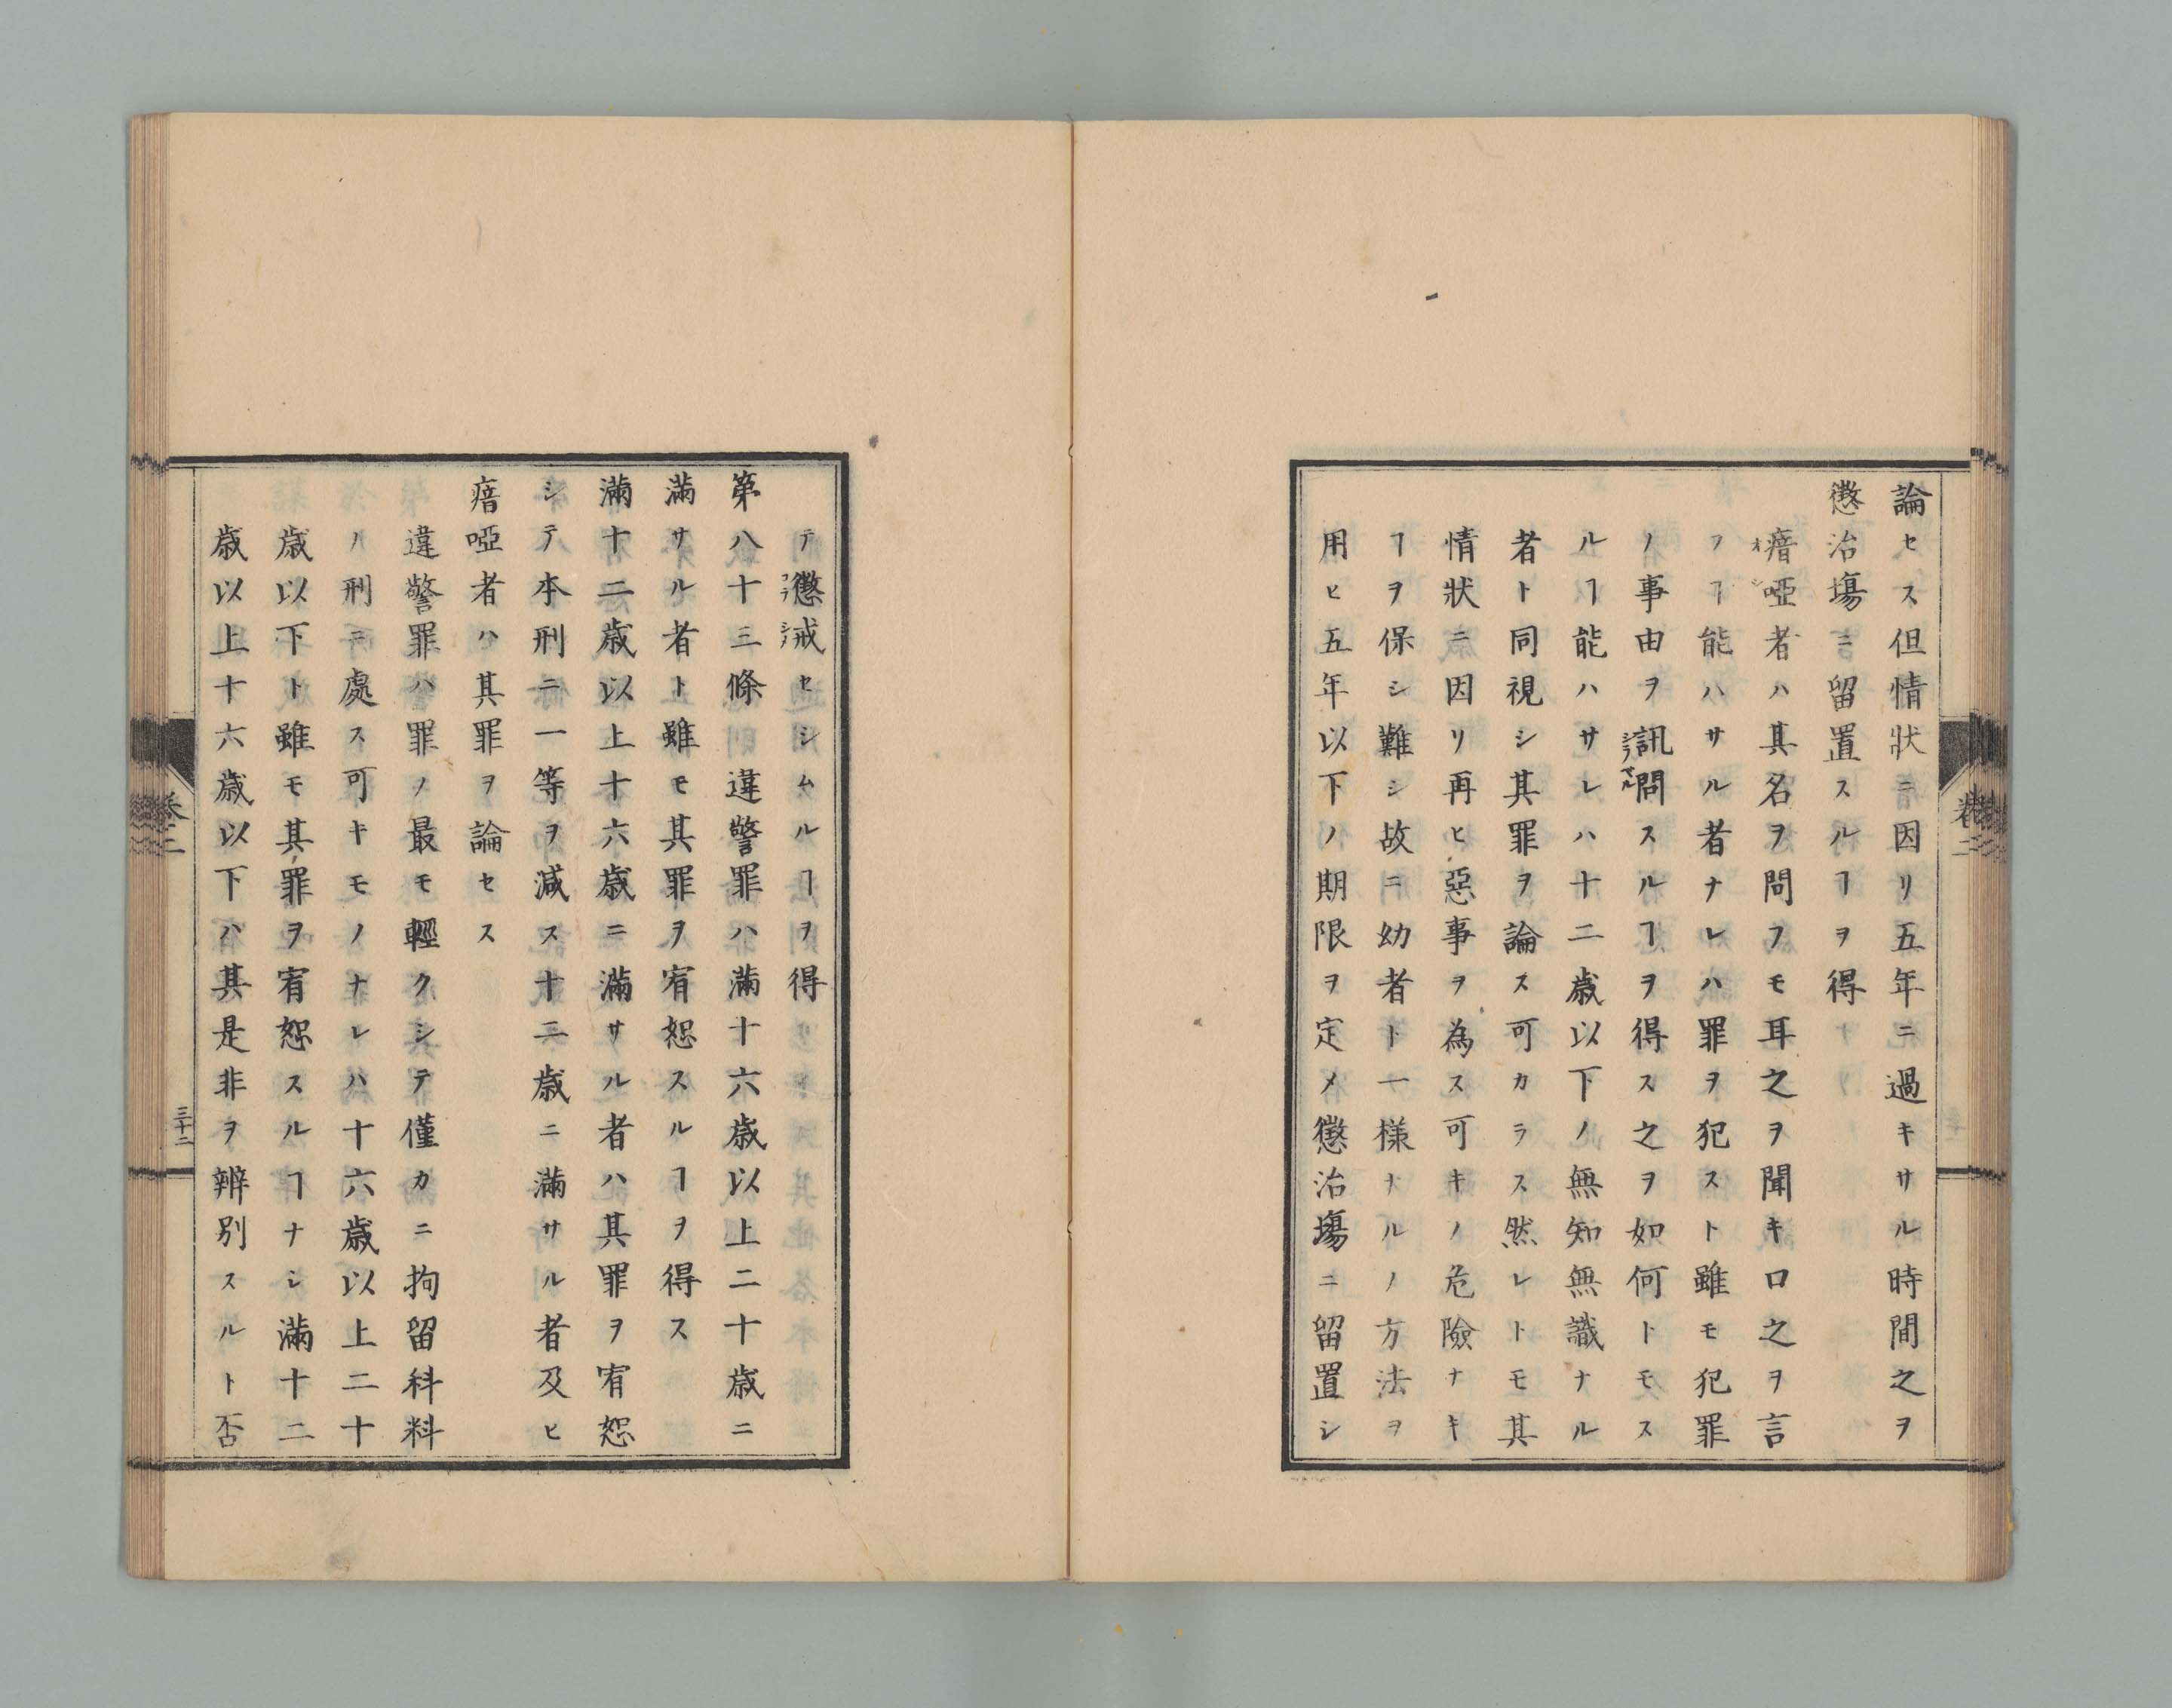 論セス但情状ニ因リ五年ニ過キサル時間之ヲ
懲治塲ニ留置スルヿヲ得
瘖啞者ハ其名ヲ問フモ耳之ヲ聞キ口之ヲ言
フヿ能ハサル者ナレハ罪ヲ犯スト雖モ犯罪
ノ事由ヲ訊問スルヿヲ得ス之ヲ如何トモス
ルヿ能ハサレハ十二歳以下ノ無知無識ナル
者ト同視シ其罪ヲ論ス可カラス然レトモ其
情狀ニ因リ再ヒ惡事ヲ為ス可キノ危險ナキ
ヿヲ保シ難シ故ニ幼者ト一様ナルノ方法ヲ
用ヒ五年以下ノ期限ヲ定メ懲治塲ニ留置シ
テ懲戒セシムルヿヲ得
第八十三條違警罪ハ滿十六歳以上二十歳ニ
滿サル者ト雖モ其罪ヲ宥恕スルヿヲ得ス
滿十二歳以上十六歳ニ滿サル者ハ其罪ヲ宥恕
シテ本刑ニ一等ヲ減ス十二歳ニ滿サル者及ヒ
瘖啞者ハ其罪ヲ論セス
違警罪ハ罪ノ最モ輕クシテ僅カニ拘留科料
ノ刑ニ處ス可キモノナレハ十六歳以上二十
歳以下ト雖モ其罪ヲ宥恕スルヿナシ滿十二
歳以上十六歳以下ハ其是非ヲ辨別スルト否
卷二
三十二